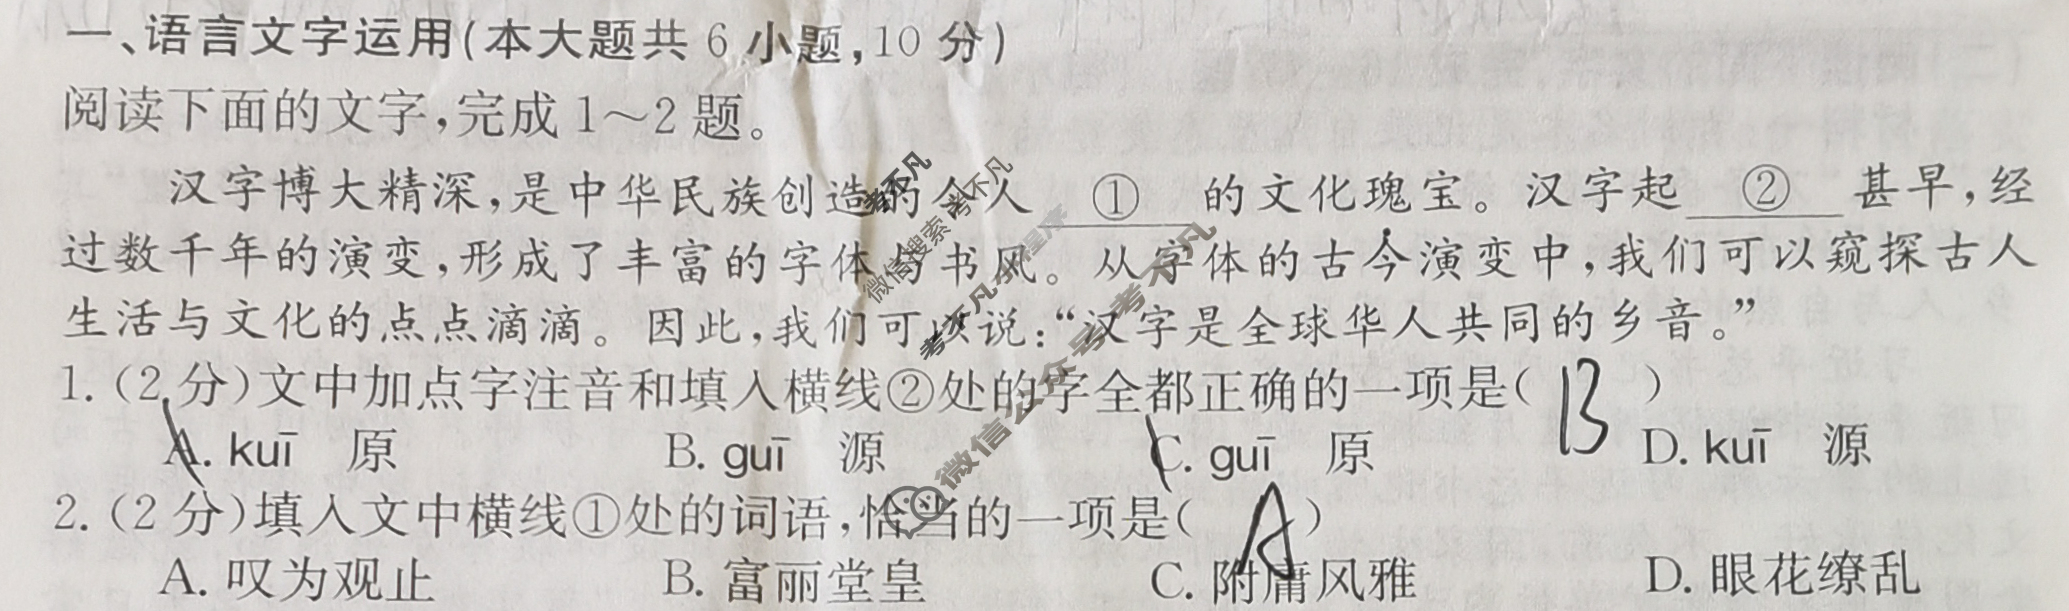 一、语言文字运用(本大题共 6 小题,10 分)
阅读下面的文字,完成 1～2 题。
汉字博大精深,是中华民族创造的令人 ① 的文化瑰宝。汉字起 ② 甚早,经
过数千年的演变,形成了丰富的字体与书风。从字体的古今演变中,我们可以窥探古人
生活与文化的点点滴滴。因此,我们可以说:“汉字是全球华人共同的乡音。”
1. (2 分)文中加点字注音和填入横线②处的字全都正确的一项是( B )
A. kuī 原 B. guī 源 C. guī 原 D. kuī 源
2. (2 分)填入文中横线①处的词语,恰当的一项是( A )
A. 叹为观止 B. 富丽堂皇 C. 附庸风雅 D. 眼花缭乱
微信搜索 考不凡
考不凡小程序
微信公众号 考不凡